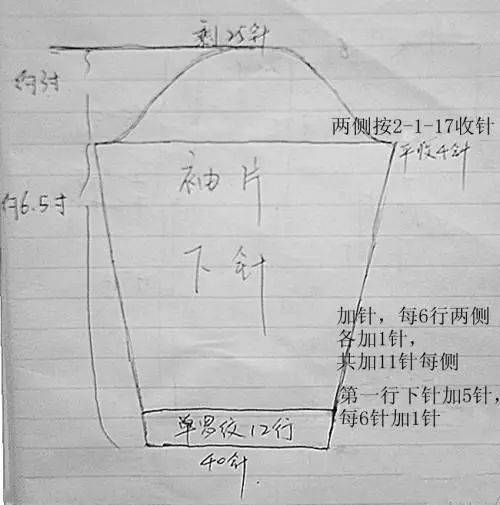 剩25针
约3寸
两侧按2-1-17收针
平收4针
袖片
约6.5寸
下针
加针，每6行两侧
各加1针，
共加11针每侧
第一行下针加5针，
每6针加1针
单罗纹12行
40针